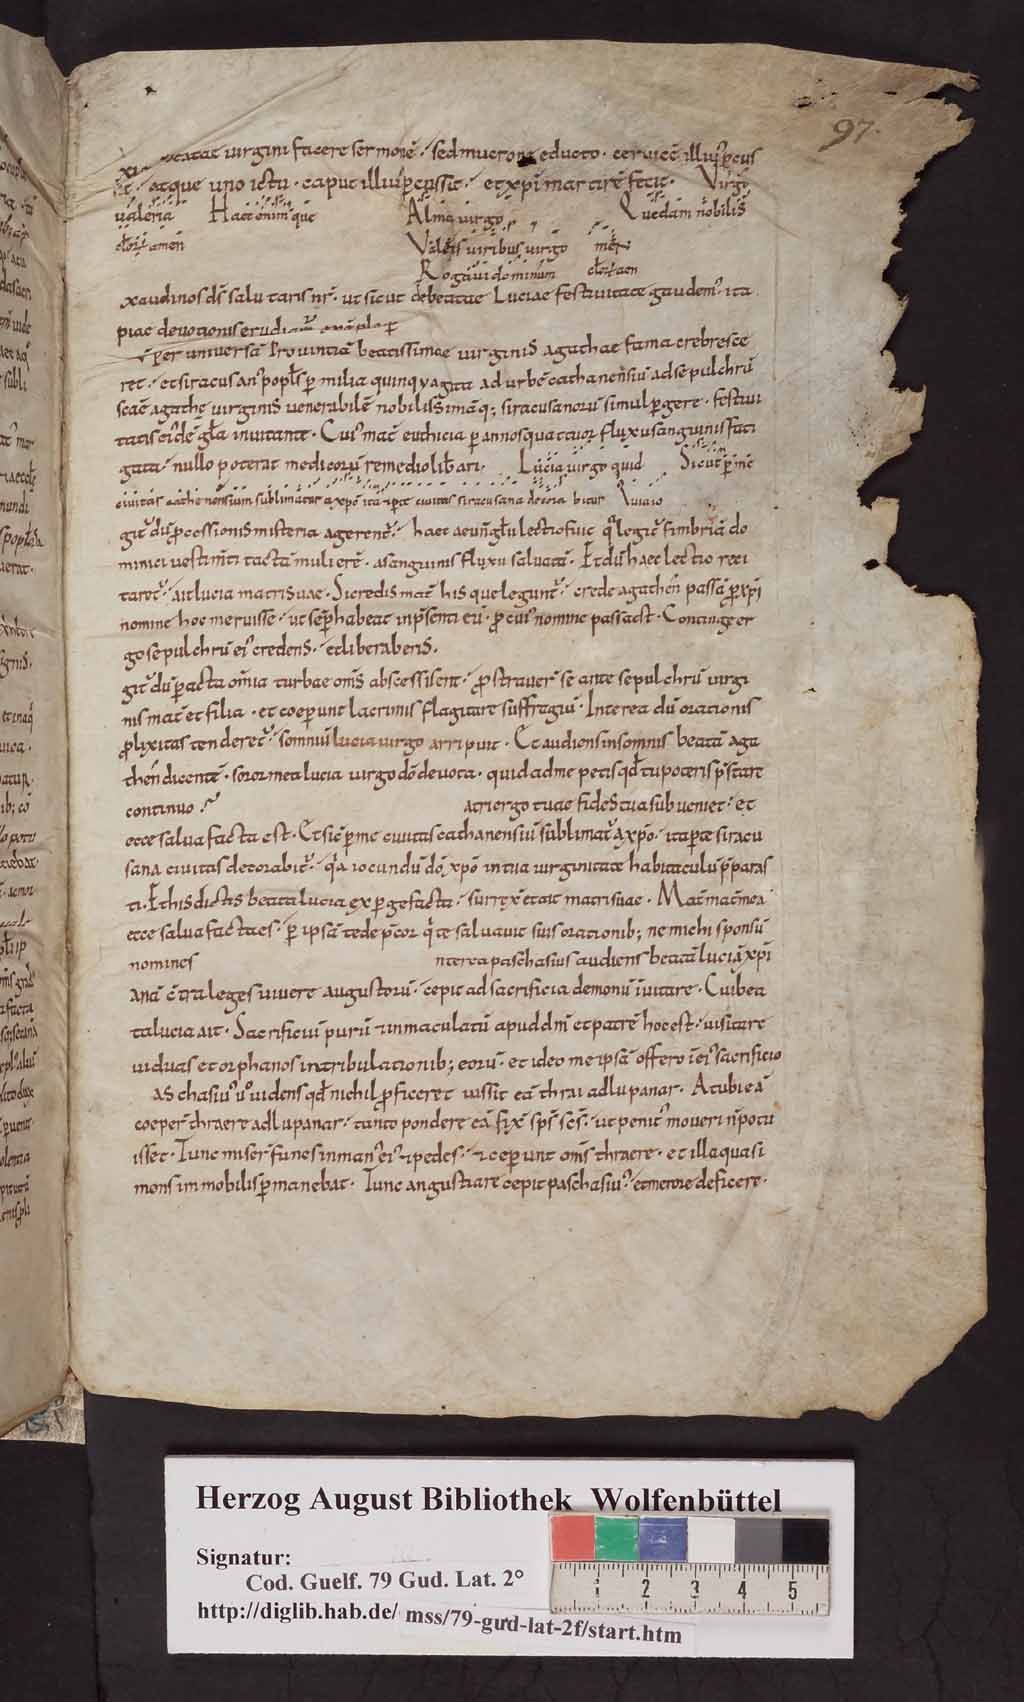 97.
beatae virgini facere sermonē · sed mucrone educto · cervicē illiꝰ pcus
sit · atque uno ictu · caput illiꝰ pcussit · et xp̄i martirē fecit · Virgo
valeria Haec enim que Alma virgo Quedam nobilis
Valens viribus virgo
Rogavi dominum
xaudi nos ds̄ salutaris nr̄ · ut sicut de beatae Luciae festivitate gaudemꝰ · ita
piae devotionis erudiam̄
Per universā Provinciā beatissimae virginis agathae fama crebresce
ret · et siracusanꝰ popls̄ p milia quinquaginta ad urbē cathanensiū ad sepulchrū
scāe agathę virginis venerabilē nobilissimāq; siracusanorū simul pgere · festivi
tatis eiꝰdē gl̄a invitante · Cuiꝰ mat̄ euthicia p annos quatuor fluxū sanguinis fati
gata · nullo poterat medicorū remedio lib̄ari · Lucia virgo quid Sicut p me
civitas cathenensium sublimatur a xpō ita et p te civitas siracusana decora bitur
git̄ dū pcessionis misteria agerent̄ · haec aevn̄gl̄ii lectio fuit q̄ legit̄ fimbriā do
minici vestim̄ti tactā mulierē · a sanguinis fluxu salvatā · Et dū haec lectio reci
taret̄ · ait lucia matri suae · Si credis mat̄ his que legunt̄ · crede agathen̄ passā p xp̄i
nomine hoc meruisse · ut semp habeat in psenti eū · p cuiꝰ nomine passa est · Continge er
go sepulchrū eiꝰ credens · et liberaberis ·
git̄ dū pacta om̄ia turbae om̄s abscessissent · pstraver̄ se ante sepulchrū virgi
nis mat̄ et filia · et coeperunt lacrimis flagitare suffragiū · Interea dū orationis
plixitas tenderet̄ · somnū lucia virgo arripuit · Et audiens in somnis beatā aga
then̄ dicentē · soror mea lucia virgo dō devota · quid ad me petis qd̄ tu poteris pstare
continuo matri ergo tuae fides tua subveniet · et
ecce salva facta est · Et sic p me civitas cathanensiū sublimat̄ a xpō · ita p te siracu
sana civitas decorabit̄ · q̄a iocundū dō xpō in tua virginitate habitaculū pparas
ti · Et his dictis beata lucia expgefacta · surrex̄ et ait matri suae · Mat̄ mat̄ mea
ecce salva facta es · p ipsā te depcor q̄ te salvavit suis orationib; ne michi sponsū
nomines nterea paschasius audiens beatā luciā xp̄i
anā c̄tra leges vivere augustorū · cepit ad sacrificia demonū ivitare · Cui bea
ta lucia ait · Sacrificiū purū & inmaculatū apud dm̄ et patrē hoc est · visitare
viduas et orphanos in tribulationib; eorū · et ideo me ipsā offero i eiꝰ sacrificio
aschasiꝰ v̄o videns qd̄ nichil pficeret iussit eā thrai ad lupanar · At ubi eā
coeper̄ thraere ad lupanar · tanto pondere eā fix̄ sps̄ scs̄ · ut penitꝰ moveri n̄ potu
isset · Tunc miser funes in manꝰ eiꝰ & pedes · & ceperunt om̄s thraere · et illa quasi
mons immobilis pmanebat · Tunc angustiare cepit paschasiuꝰ · et merore deficere ·
Herzog August Bibliothek Wolfenbüttel
Signatur:
Cod. Guelf. 79 Gud. Lat. 2°
http://diglib.hab.de/ mss/79-gud-lat-2f/start.htm
1 2 3 4 5